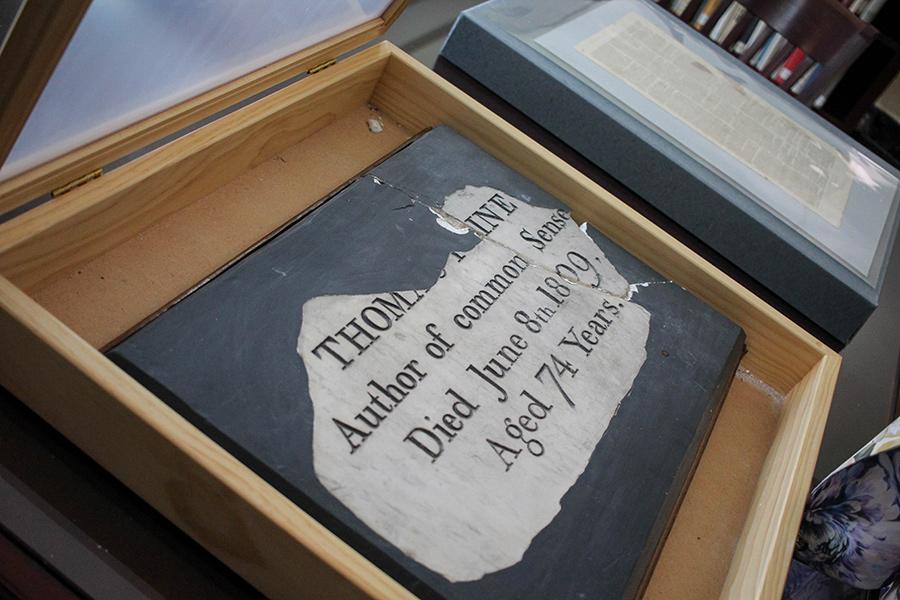 THOMA INE
Author of common Sense
Died June 8th. 1809,
Aged 74 Years.